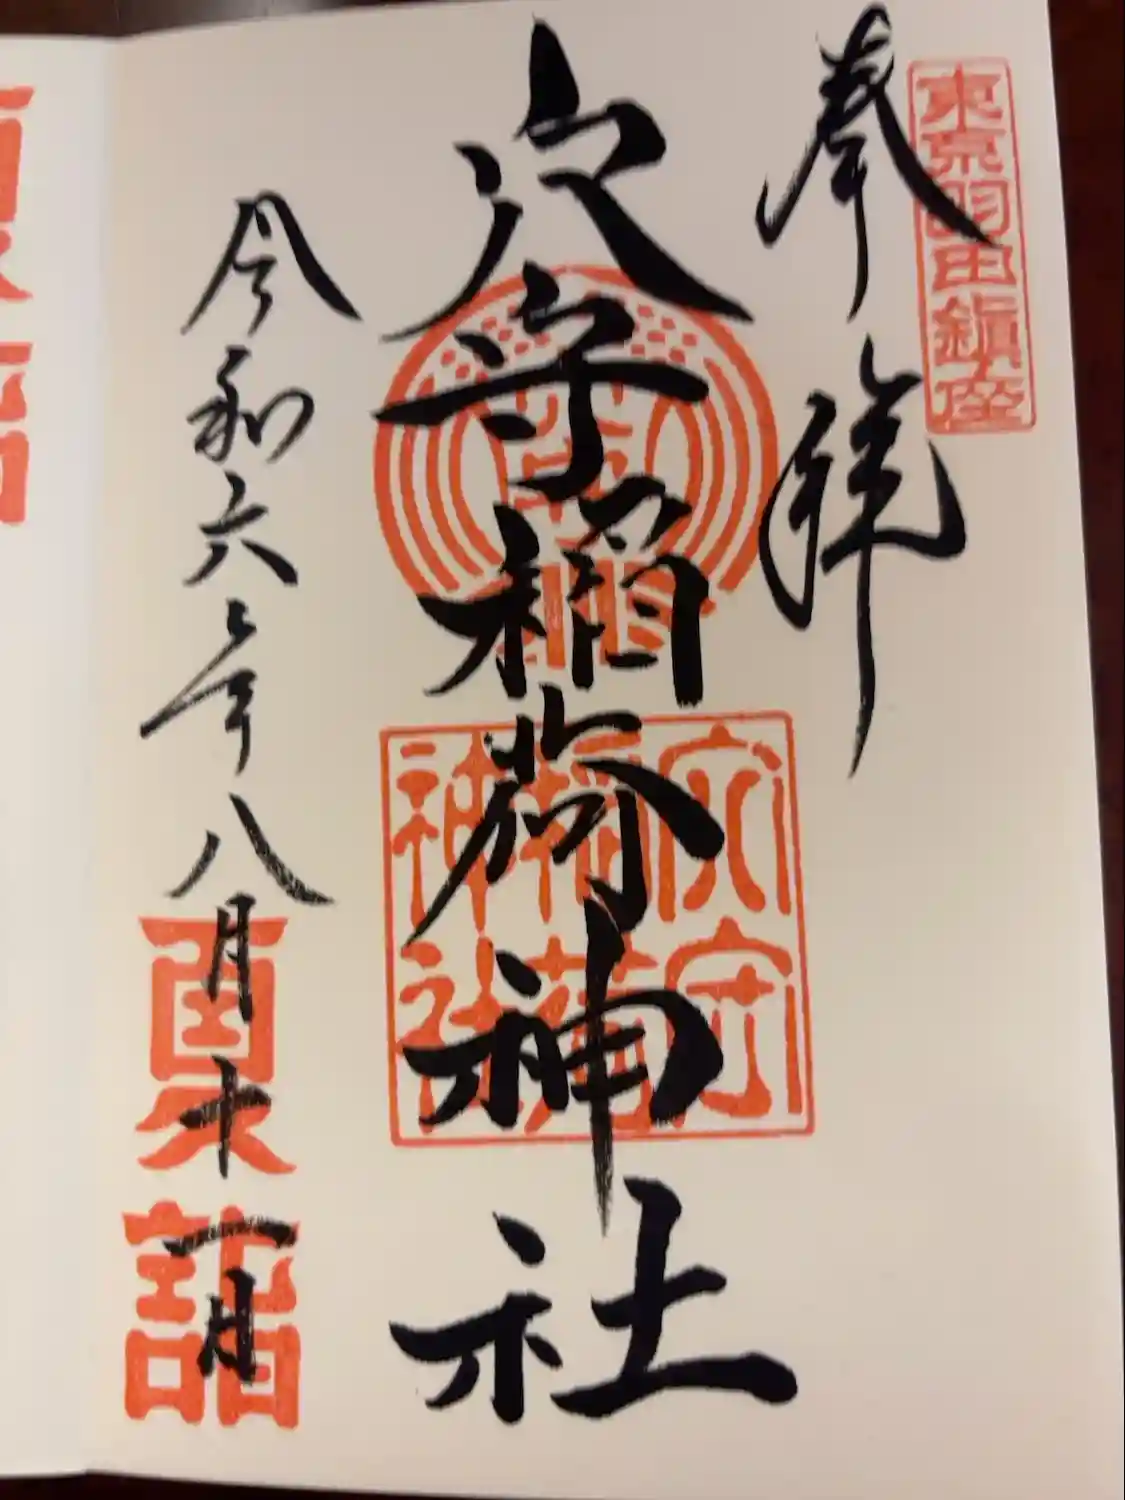 東京羽田鎮座
奉拝
穴守稲荷神社
穴守
稲荷
神社
令和六年八月十一日
夏詣